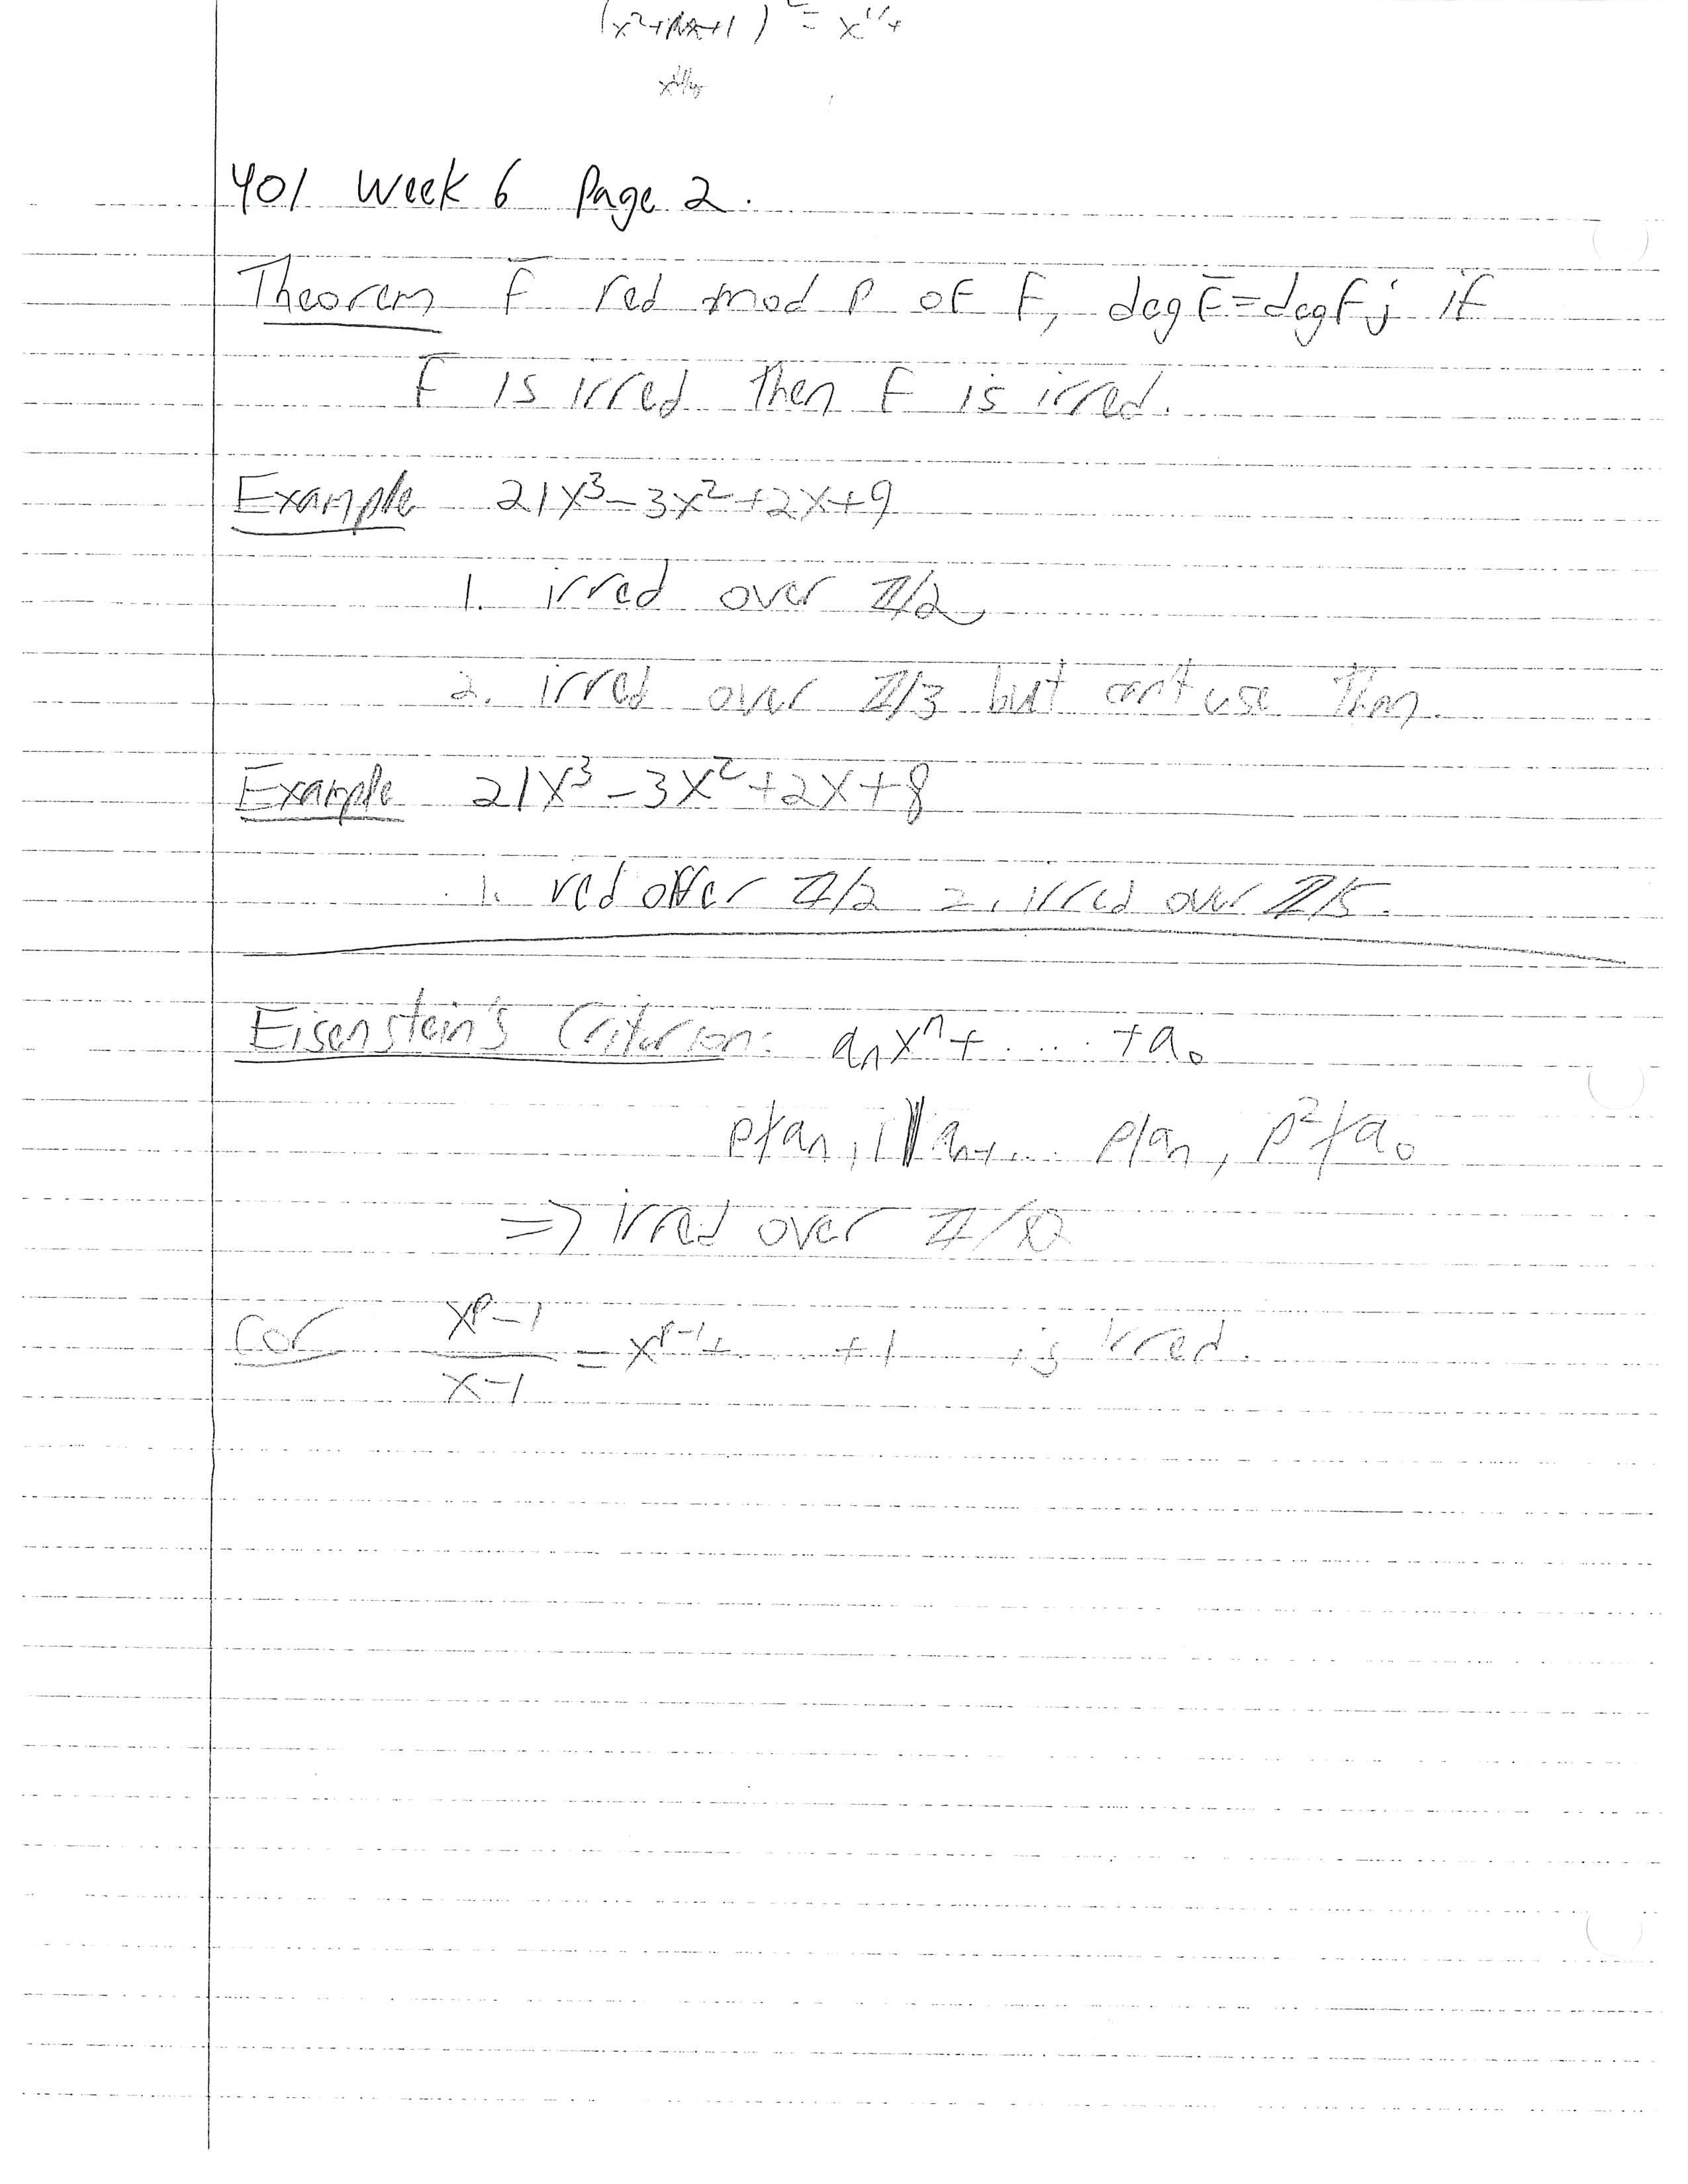 (x²+x+1)² = x⁴+
401 Week 6 Page 2.
Theorem F̄ red mod p of F, deg F̄ = deg F; if
F̄ is irred then F is irred.
Example 21x³-3x²+2x+9
1. irred over ℤ/2,
2. irred over ℤ/3 but can't use Thm.
Example 21x³-3x²+2x+8
1. red over ℤ/2 2. irred over ℤ/5.
Eisenstein's Criterion: aₙxⁿ+.....+a₀
p∤aₙ, aₙ₋₁... p|aₙ, p²∤a₀
=> irred over ℤ/ℚ
Cor xᵖ-1
/ x-1 = xᵖ⁻¹+...+1 is irred.